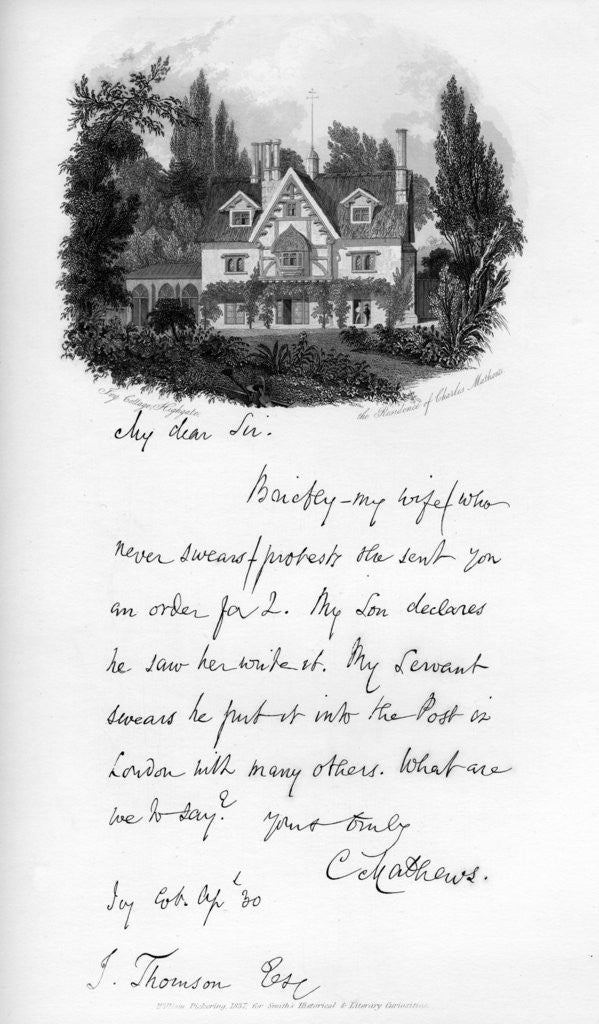 Ivy Cottage, Highgate,
the Residence of Charles Mathews.
My dear Sir.
Briefly - my wife (who
never swears) protests she sent you
an order for 2. My Son declares
he saw her write it. My Servant
swears he put it into the Post in
London with many others. What are
we to say?
Yours truly
C Mathews.
Ivy Cot. Apl 30
J. Thomson Esq
William Pickering, 1837, for Smith's Historical & Literary Curiosities.